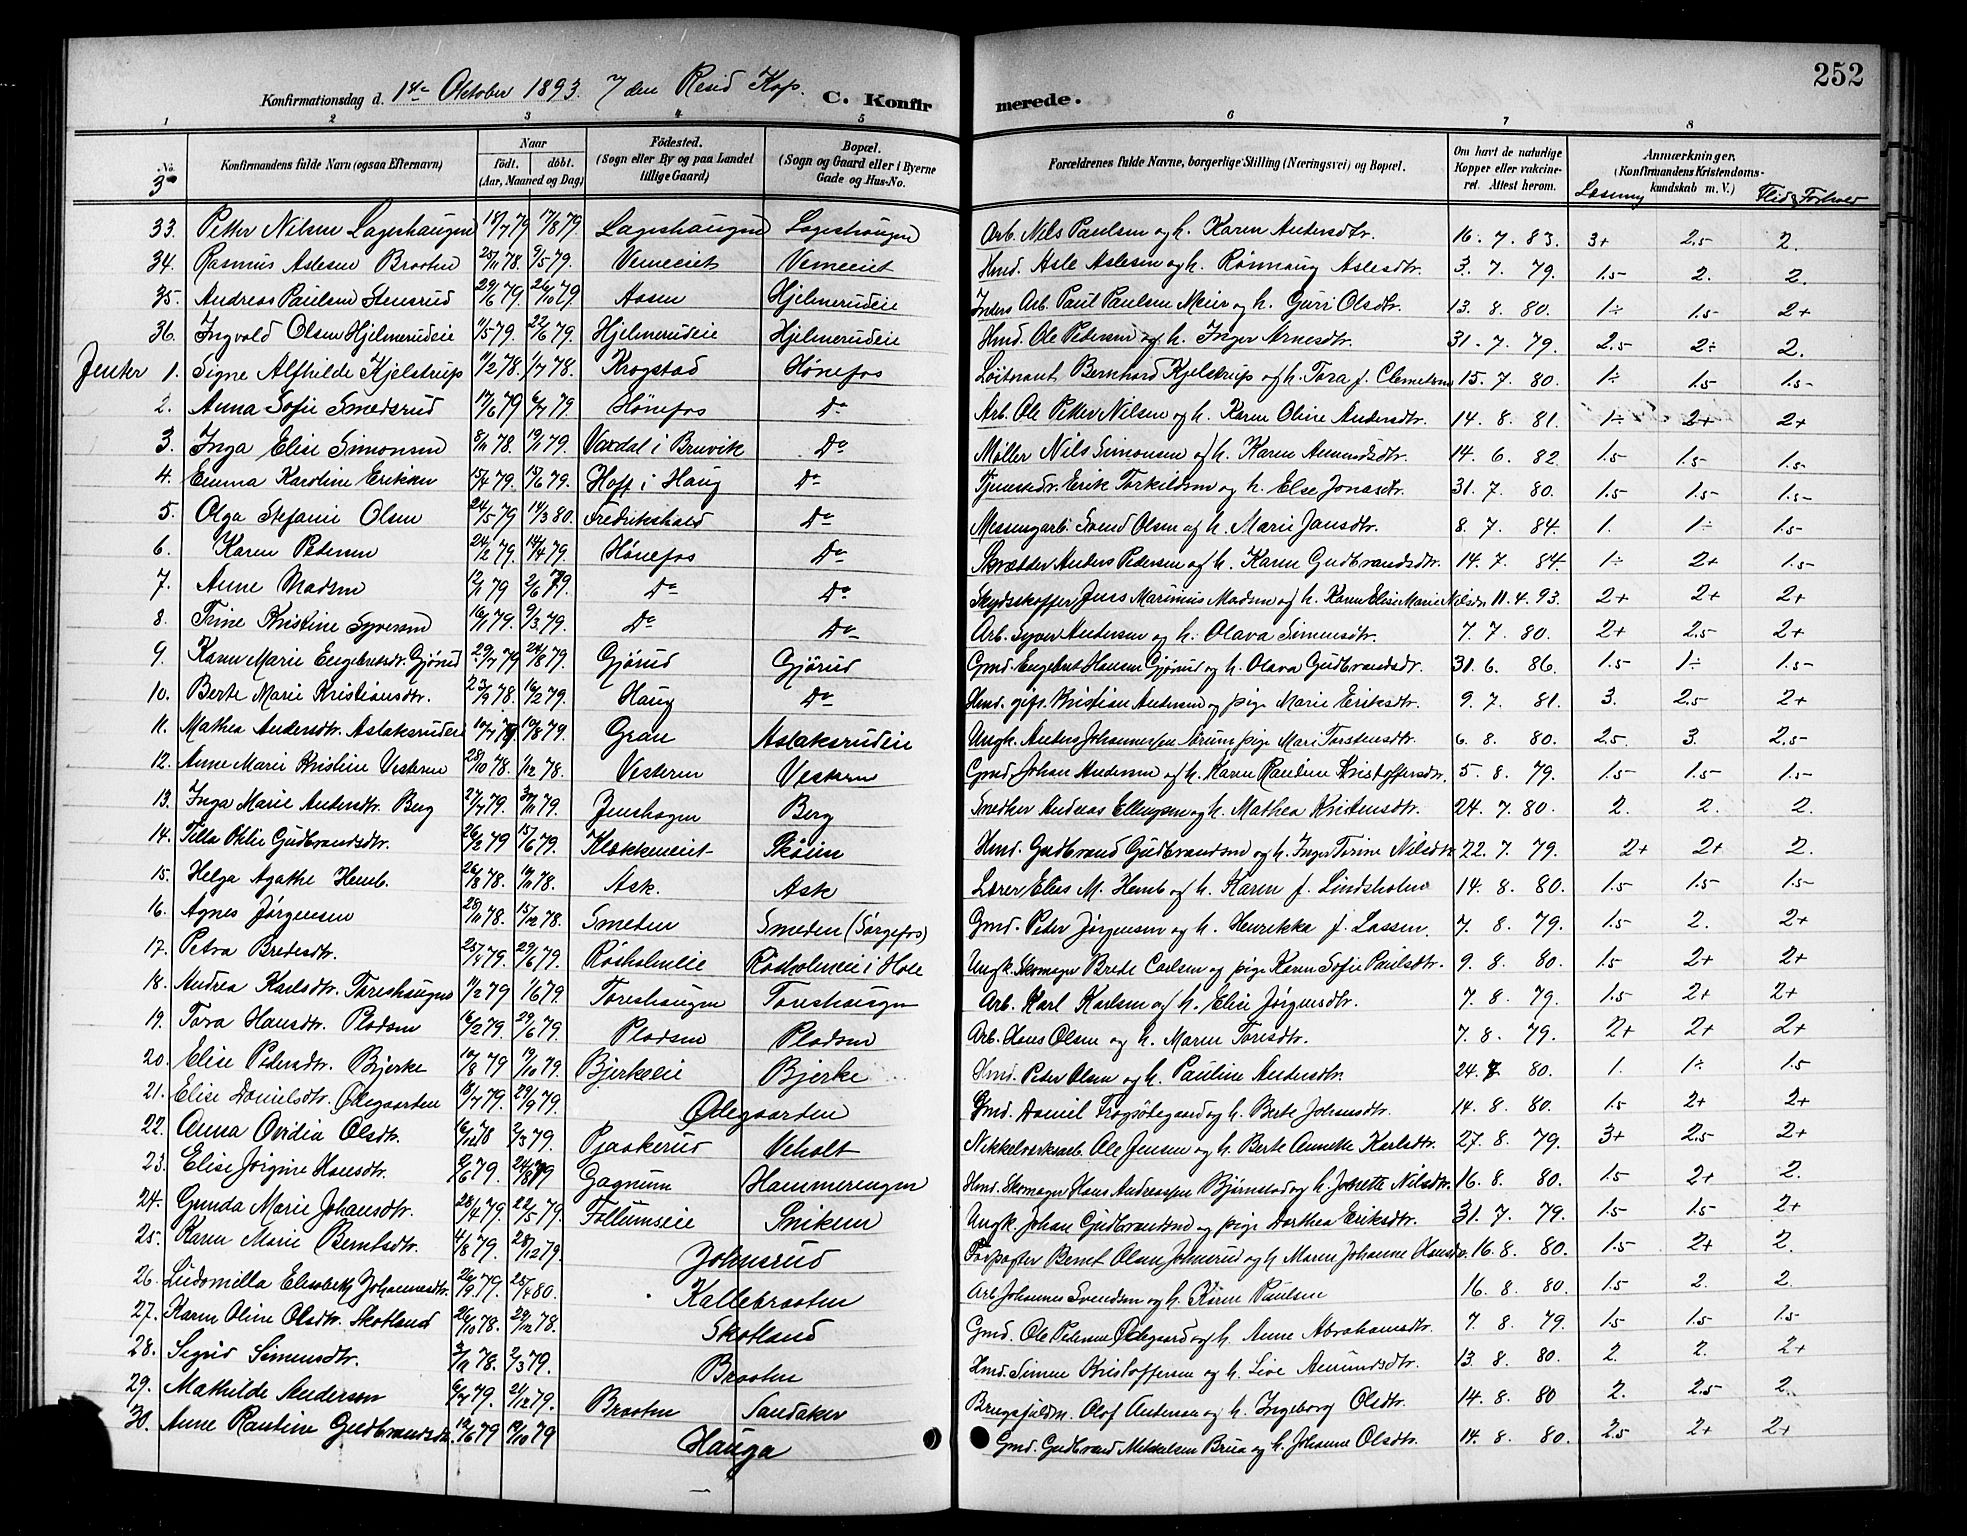 252
Konfirmationsdag d. 1ste Oktober 1893. 7 den Resid Kap. C. Konfirmerede.
1 2 3 4 5 6 7 8
No. Konfirmandens fulde Navn (ogsaa Efternavn) Naar födt. döbt. (Aar, Maaned og Dag) Födested. (Sogn eller By og paa Landet tillige Gaard) Bopæl. (Sogn og Gaard eller i Byerne Gade og Hus-No. Forældrenes fulde Navne, borgerlige Stilling (Næringsvei) og Bopæl. Om havt de naturlige Kopper eller vakcineret. Attest herom. Anmærkninger. (Konfirmandens Kristendomskundskab m. V.)
Læsning Flid & Forhold
33. Petter Nilsen Lageshaugen 17/8 79. Lageshaugen Lageshaugen Arb. Nils Paulsen og h. Karen Andersdtr. 16. 7. 83. 3+ 2.5 2.
34. Rasmus Aslesen Braaten 25/11 78. 9/5 79. Vemeeiet Vemeeiet Hmd. Asle Aslesen og h. Rönnaug Aslesdtr. 3. 7. 79. 1.5 2. 2.
35. Andreas Paulsen Stensrud 29/6 79. 26/10 79. Aasen Hjelmerudeie Inders Arb. Paul Paulsen Meier og h. Guri Olsdtr. 13. 8. 80. 1÷ 1.5 2+
36. Ingvold Olsen Hjelmerudeie 11/5 79. 22/6 79. Hjelmerudeie Hjelmerudeie Hmd. Ole Pedersen og h. Inger Arnesdtr. 31. 7. 79. 2.5 2÷ 2.
Jenter 1. Signe Alfhilde Kjelstrup 11/2 78. 1/7 78. Krogstad Hönefos Löitnant Bernhard Kjelstrup og h. Tora f. Clemetsen 15. 7. 80. 1÷ 1.5 1.5
2. Anna Sofie Smedsrud 17/6 79 6/7 79. Hönefos Do Arb. Ole Petter Nilsen og h. Karen Oline Andersdtr. 14. 8. 81. 1÷ 2+ 2+
3. Inga Elise Simonsen 8/11 78. 19/1 79. Vaxdal i Bruvik Do Møller Nils Simonsen og h. Karen Amundsdtr. 14. 6. 82. 1.5 1.5 1.5
4. Emma Karoline Eriksen 15/4 79. 15/6 79. Hoff i Haug Do Erik Torkildsen og h. Else Jonasdtr. 31. 7. 80. 1.5 1.5 1.5
5. Olga Stefanie Olsen 24/5 79 14/3 80. Fredrikshald Do Messingarb. Svend Olsen og h. Marie Jansdtr. 8. 7. 84. 1. 1÷ 1.5
6. Karen Pedersen 24/2 79. 14/4 79. Hönefos Do Skrædder Anders Pedersen og h. Karen Gudbrandsdtr. 14. 7. 84. 1÷ 2+ 1.5
7. Anne Madsen 12/1 79 2/6 79. Do Do Skydsskaffer Jens Marinius Madsen og h. Karen Elise Marie Nilsdtr. 11. 4. 93. 2+ 2+ 2+
8. Trine Kristine Syversen 16/1 79. 9/3 79. Do Do Arb. Syver Andersen og h. Olava Simensdtr. 7. 7. 80. 2+ 2.5 2+
9. Karen Marie Engebretsdtr. Gjörud 29/7 79 24/8 79. Gjörud Gjörud Gmd. Engebret Hansen Gjörud og h. Olava Gudbrandsdtr. 31. 6. 86. 1.5 1÷ 1.5
10. Berte Marie Kristiansdtr. 23/9 78. 16/2 79. Haug Do Hmd. gift. Kristian Andersen og pige Marie Eriksdtr. 9. 7. 81. 3. 2.5 2+
11. Mathea Andersdtr. Aslaksrudeie 10/7 79. 10/8 79. Gran Aslaksrudeie Ungk. Anders Johannessen Sörum, pige Mari Torstensdtr. 6. 8. 80. 2.5. 3. 2.5
12. Anne Marie Kristine Vesteren 28/10 78. 1/12 78. Vesteren Vestern Gmd. Johan Andersen og h. Karen Pauline Kristoffersdtr. 5. 8. 79. 1.5 1.5 1.5
13. Inga Marie Andersdtr. Berg 27/7 79. 30/11 79. Jenshagen Berg Snedker Andreas Ellingsen og h. Mathea Kristensdtr. 24. 7. 80. 2. 2. 2.
14. Tilla Otilie Gudbrandsdtr. 26/2 79 15/6 79. Klækkeneiet Sköien Hmd. Gudbrand Gudbrandsen og h. Inger Trine Nilsdtr. 22. 7. 79. 2+ 2+ 2.
15. Helga Agathe Hemb. 26/8 78. 10/11 78. Ask. Ask Lærer Elias M. Hemb og h. Karen f. Lindsholm 14. 8. 80. 1.5 1.5 1.5
16. Agnes Jørgensen 28/11 78. 15/12 78. Smeden Smeden (Sørgefos) Gmd. Peder Jørgensen og h. Henrikka f. Lassen. 7. 8. 79. 1.5 2. 2+
17. Petra Bredesdtr. 25/4 79. 29/6 79. Rösholmeie Rösholmeie i Hole Ungk. Skomager Brede Carlsen og pige Karen Sofie Paulsdtr. 9. 8. 80. 1.5 2+ 2+
18. Andrea Karlsdtr. Toreshaugen 11/2 79 1/6 79. Toreshaugen Toreshaugen Arb. Karl Karlsen og h. Elise Jørgensdtr. 7. 8. 79. 1.5 2+ 2+
19. Tora Hansdtr. Pladsen 16/2 79. 29/6 79. Pladsen Pladsen Arb. Hans Olsen og h. Maren Toresdtr. 7. 8. 79. 2+ 2+ 2+
20. Elise Pedersdtr. Bjerke 10/8 79 19/10 79. Bjerkeeie Bjerke Hmd. Peder Olsen og h. Pauline Andersdtr. 24. 7 80. 1. 1÷ 1.5
21. Elise Danielsdtr. Ødegaarden 18/7 79. 29/9 79. Ødegaarden Gmd. Daniel Frogsødegaard og h. Berte Johansdtr. 14. 8. 80. 1.5 2+ 2+
22. Anna Ovidia Olsdtr. 16/12 78 2/3 79. Pjaakerud Veholt Nikkelverksarb. Ole Jensen og h. Berte Annette Karlsdtr. 27. 8. 79. 3+ 2.5 2+
23. Elise Jørgine Hansdtr. 9/6 79. 24/8 79 Gagnum Hammerengen Hmd. Skomager Hans Andreassen Bjørnstad og h. Jonette Nilsdtr. 16. 8. 80. 1.5 2+ 2.
24. Gunda Marie Johansdtr. 28/4 79. 22/5 79. Follumseie Sniken Ungk. Johan Gudbrandsen og pige Dorthea Eriksdtr. 31. 7. 79. 1.5 1.5 2+
25. Karen Marie Berntsdtr. 4/8 79. 28/12 79. Johnsrud Forpagter Bernt Olsen Johnsrud og h Maren Johanne Hansdtr. 16. 8. 80. 1.5 2+ 2.
26. Ludomilla Elisabeth Johannesdtr. 26/9 77. 25/4 80. Kallebraaten Arb. Johannes Svendsen og h. Karen Paulsen 16. 8. 80. 1.5 2. 2.
27. Karen Oline Olsdtr. Skotland 26/10 78. 29/12 78. Skotland Gmd. Ole Pedersen Ødegaard og h. Anne Abrahamsdtr. 7. 8. 79. 1.5 1.5 1.5
28. Sigrid Simensdtr. 3/11 78. 2/3 79. Braaten Hmd. Simen Kristoffersen og h. Live Amundsdtr. 13. 8. 80. 2. 2. 2+
29. Mathilde Andersen 6/7 79. 21/12 79. Braaten Sandaker Brugsfuldm. Olof Andersen og h. Ingeborg Olsdtr. 14. 8. 80 2. 2.5 2.
30. Anne Pauline Gudbrandsdtr. 12/6 79 19/10 79 Hauga Gmd. Gudbrand Mikkelsen Brua og h. Johanne Olsdtr. 14. 8. 80. 2.5 2+ 2+